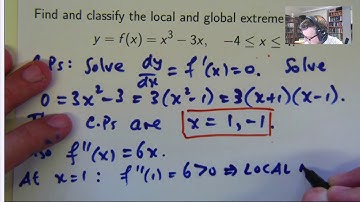 Find and classify the local and global extreme
y = f(x) = x³ − 3x, −4 ≤ x ≤
C.Ps: Solve dy/dx = f'(x) = 0. Solve
0 = 3x² − 3 = 3(x² − 1) = 3(x+1)(x−1).
C.Ps are x = 1, −1.
f''(x) = 6x.
At x = 1: f''(1) = 6 > 0 ⇒ LOCAL